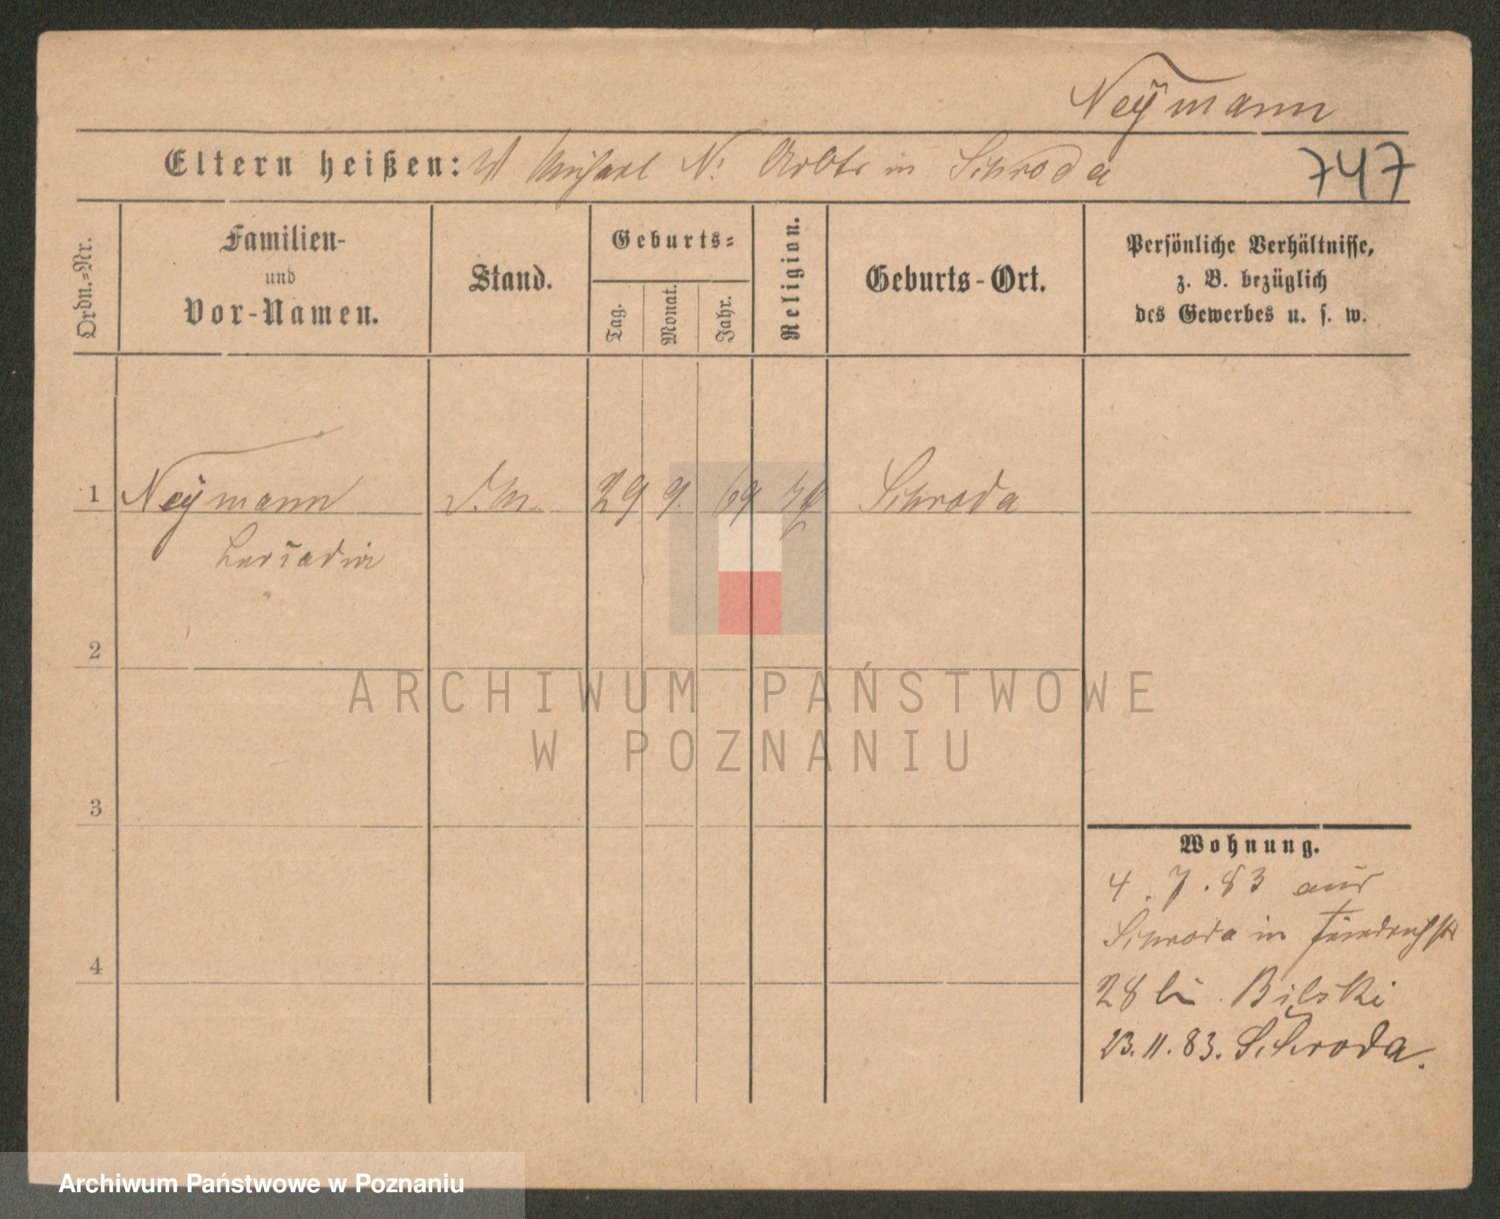 Neÿmann
Eltern heißen: Michael N. Arbtr in Schroda
747
Ordn.-Nr.
Familien-
und
Vor-Namen.
Stand.
Geburts-
Tag.
Monat.
Jahr.
Religion.
Geburts-Ort.
Persönliche Verhältnisse,
z. B. bezüglich
des Gewerbes u. s. w.
1 Neÿmann 29 9. 69 Schroda
2
3
4
ARCHIWUM PAŃSTWOWE
W POZNANIU
Wohnung.
4.7.83 aus
Schroda in Friedrichstr
28 bei Bilski
23.11.83. Schroda.
Archiwum Państwowe w Poznaniu